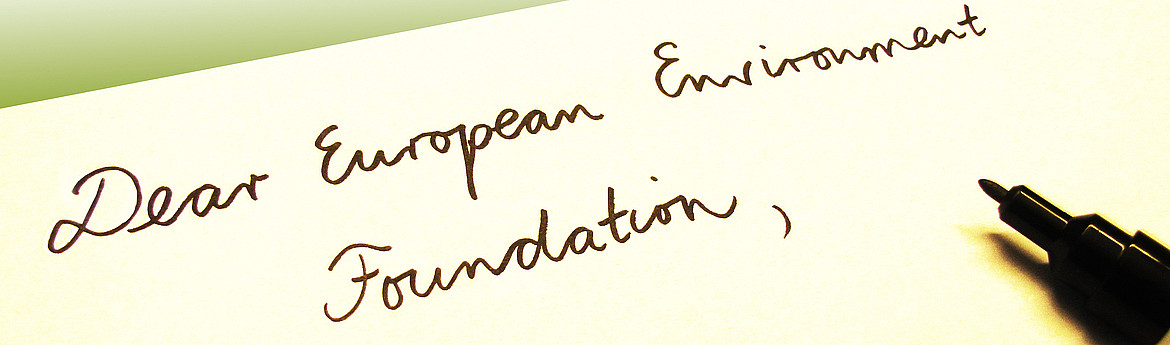 Dear European Environment
Foundation,